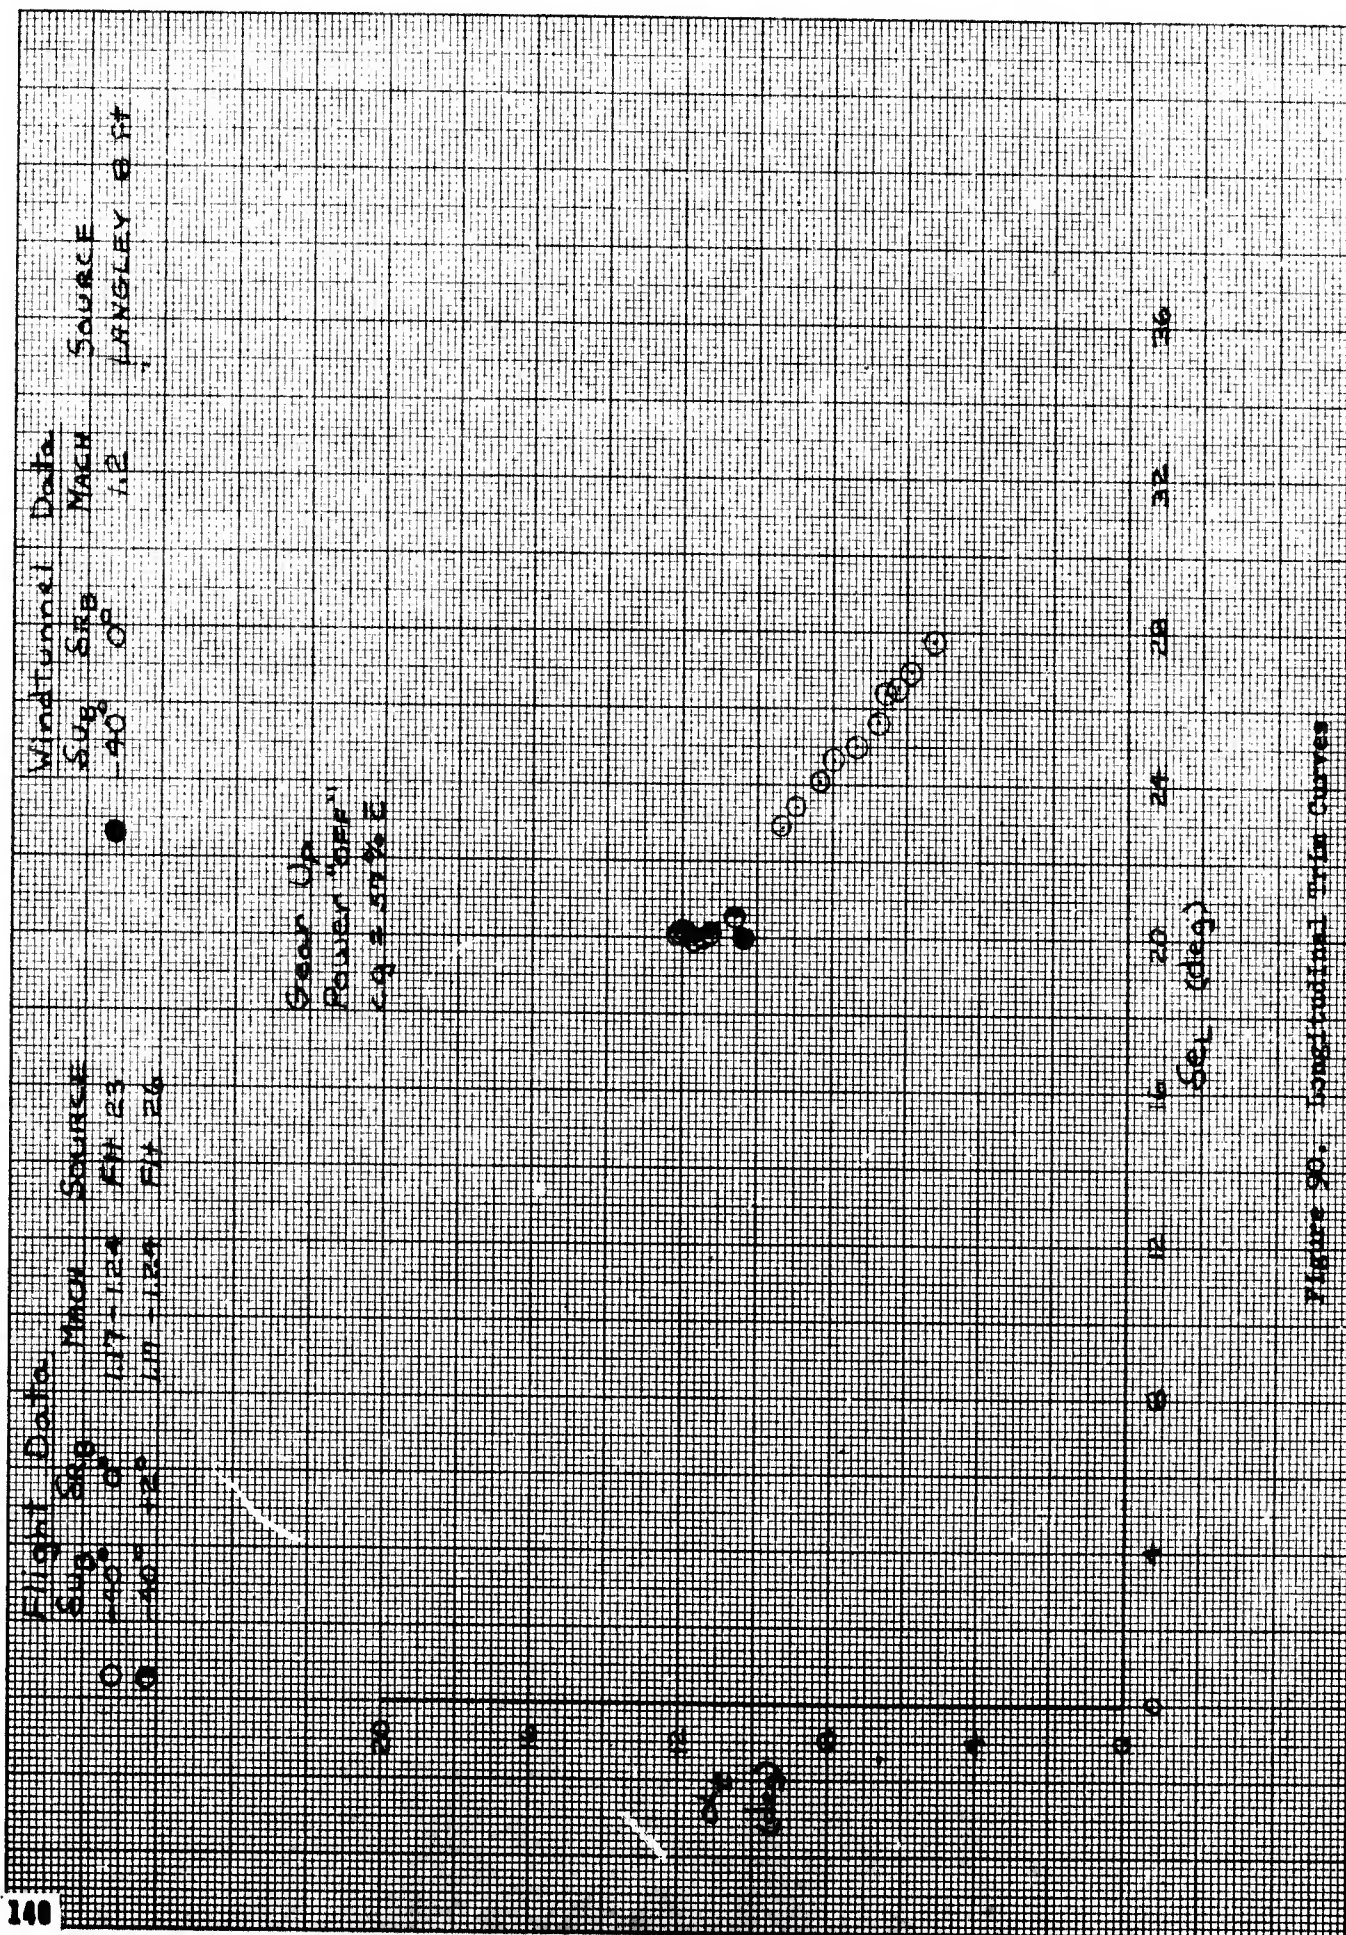 140
Flight Data
δUB δRB MACH SOURCE
-40° 0° 1.17-1.24 Flt 23
-40° +2° 1.17-1.24 Flt 26
Windtunnel Data
δUB δRB MACH SOURCE
-40° 0° 1.2 LANGLEY 8 ft
Gear Up
Power "OFF"
cg = 57% c̄
20
16
12
8
4
0
(deg)
0 4 8 12 16 20 24 28 32 36
δeL (deg)
Figure 90. Longitudinal Trim Curves